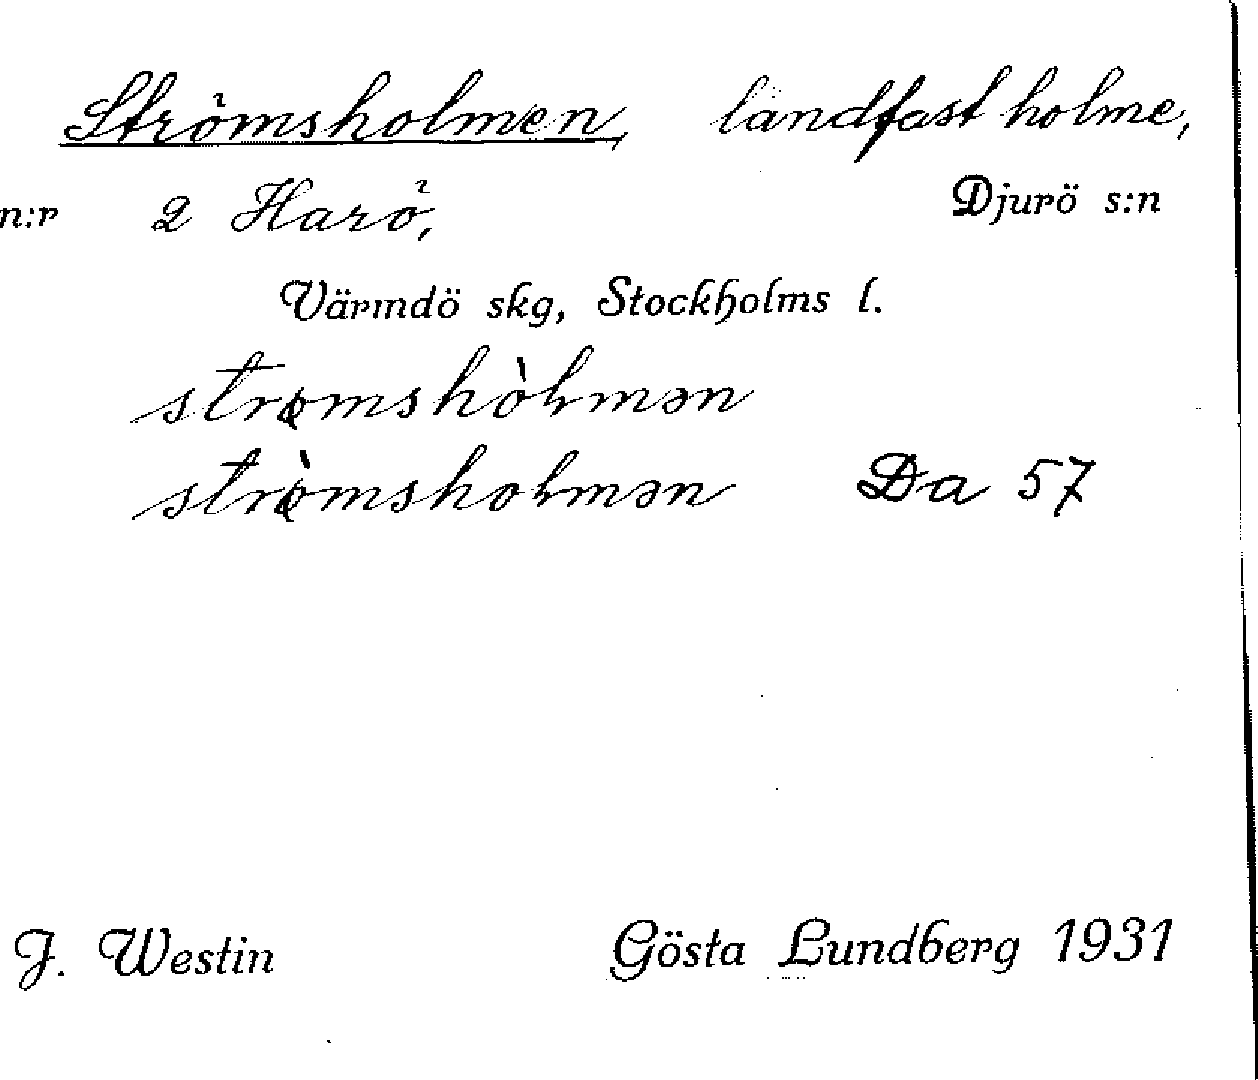 Strömsholmen, landfast holme,
n:r 2 Harö, Djurö s:n
Värmdö skg, Stockholms l.
strømshòlmən
strø̀msholmən Da 57
J. Westin Gösta Lundberg 1931